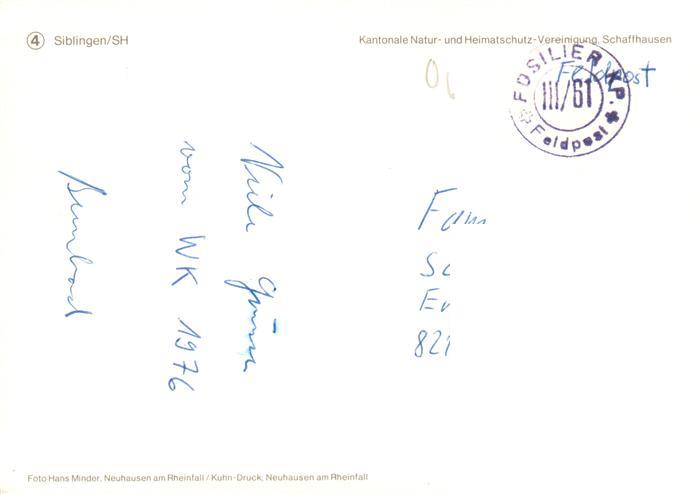 4 Siblingen/SH
Kantonale Natur- und Heimatschutz-Vereinigung, Schaffhausen
Feldpost
FÜSILIER KP.
III/61
Feldpost
Viele Grüsse
vom WK 1976
Bernhard
Fam
Sc
Er
821
Foto Hans Minder, Neuhausen am Rheinfall / Kuhn-Druck, Neuhausen am Rheinfall